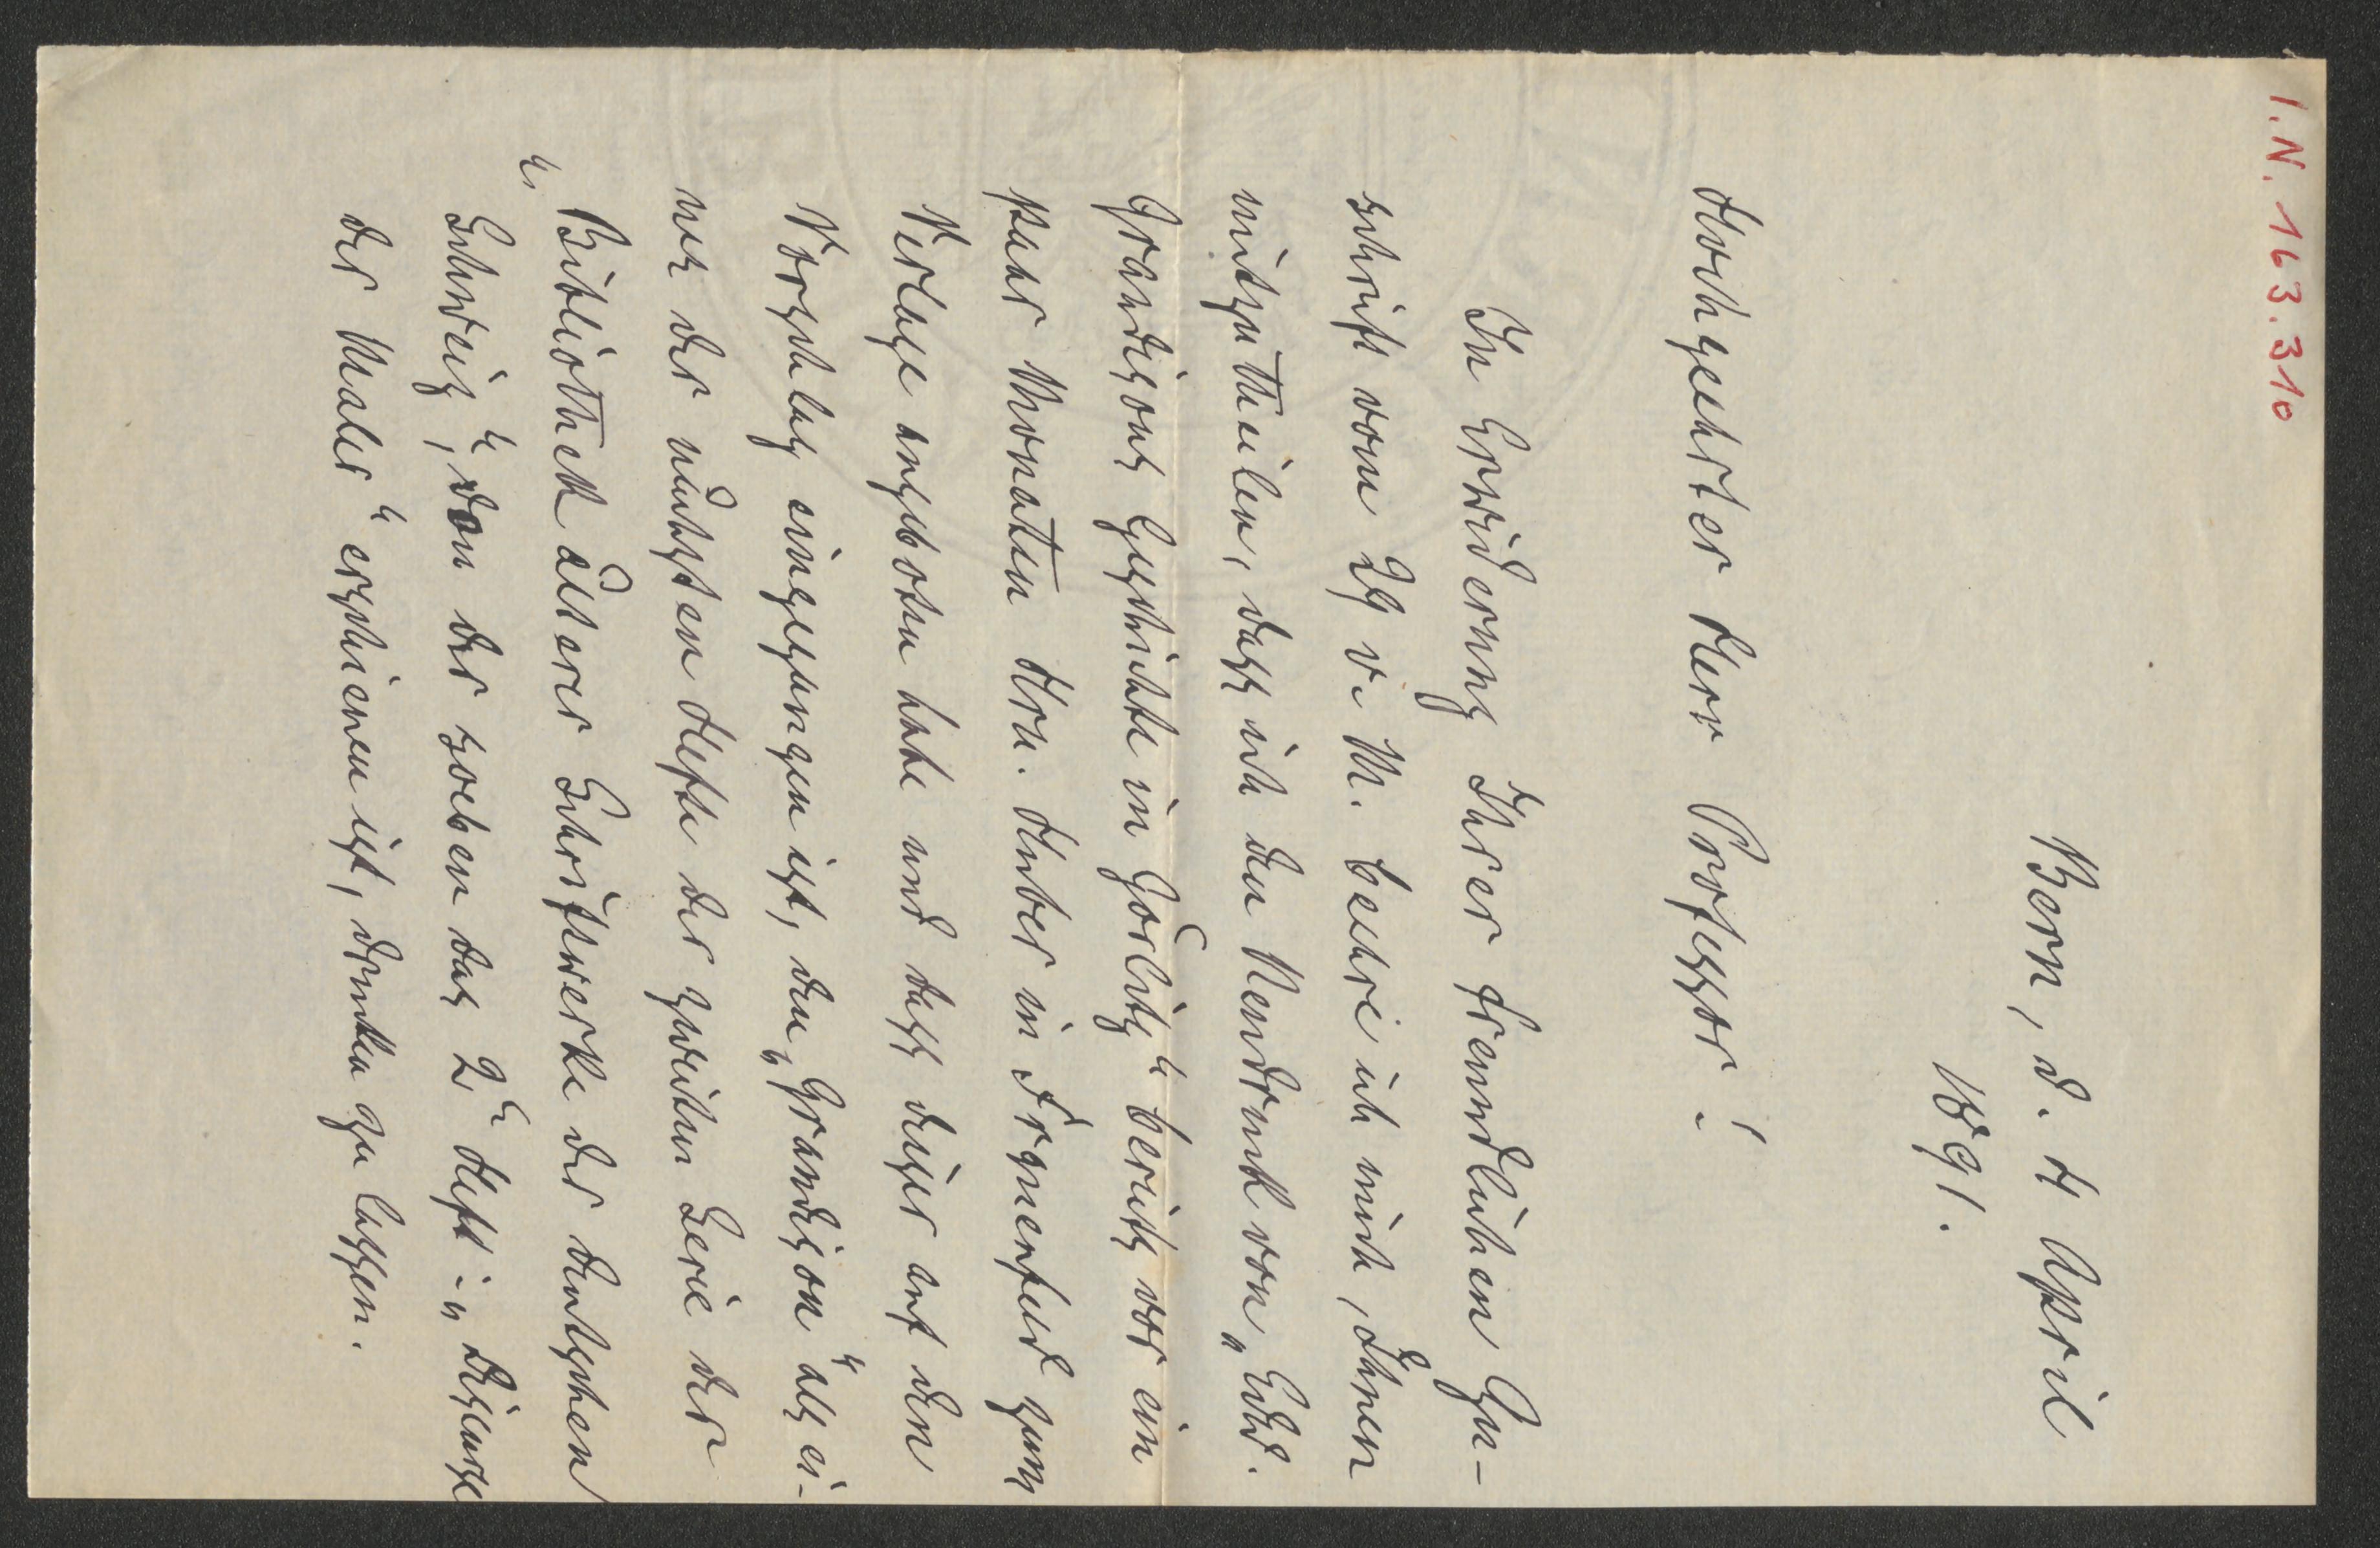 I.N. 163.310
Bern, d. 4 April
1891.
Hochgeehrter Herr Professor!
In Erwiderung Ihrer freundlichen Zu-
schrift vom 29 v. M. beehre ich mich, Ihnen
mitzutheilen, dass ich den Neudruck von „Edud.
Grandisons Geschichte in Görlitz“ bereits vor ein
paar Monaten Hrn. Huber in Frauenfeld zum
Verlage angeboten habe und dass dieser auf den
Vorschlag eingegangen ist, den „Grandison“ als ei-
nes der nächsten Hefte der zweiten Serie der
„Bibliothek älterer Schriftwerke der deutschen
Schweiz“, von der soeben das 2te Heft: „Discurse
der Maler“ erschienen ist, drucken zu lassen.